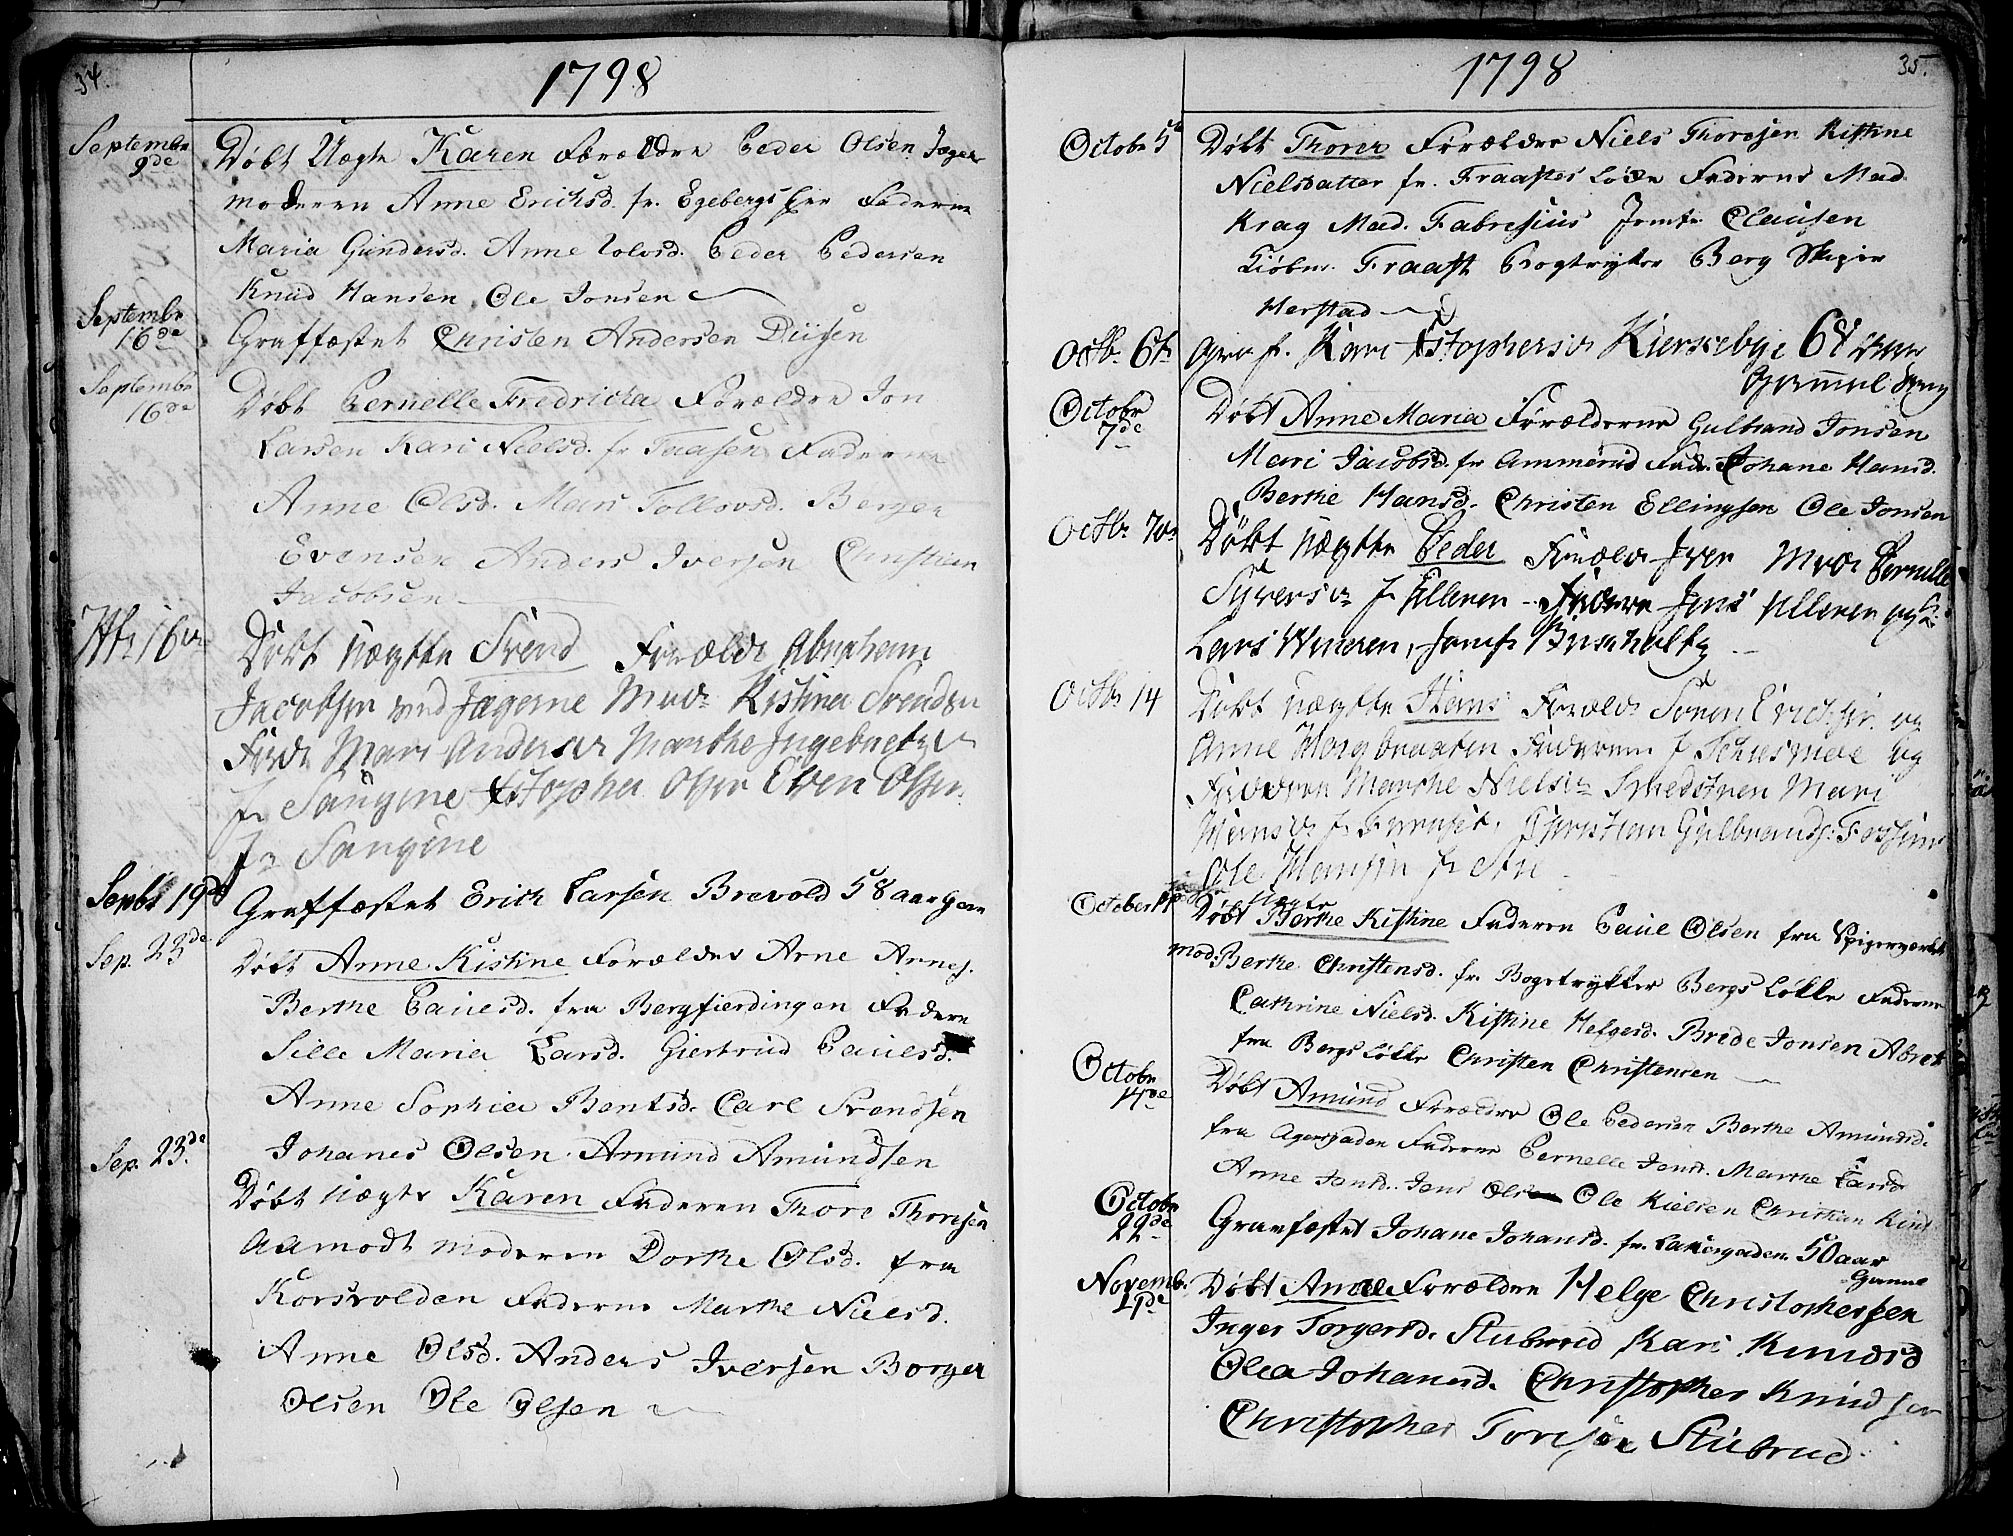 34.
1798
Septembr 9de
Døbt Uægte Karen Forældre Peder Olsen Jæger
moderen Anne Ericksd. fr. Egebergs Fadderne
Maria Gundersd. Anne Peder Pedersen
Knud Hansen Ole Jonsen
Septembr 16de
Graffæstet Christen Andersen
Septembr 16de
Døbt Pernelle Fredricka Forældre Jon
Larsen Kari Nielsd. fr Taasen Fadderne
Anne Olsd. Mari Tollovsd. Berger
Evensen Anders Iversen Christian
Jacobsen
16de
Døbt uægtte Svend Forældr Abraham
Jacobsen ved Jægerne Modr Kistina Svendsd
Fadr Mari Andersdr Marthe Ingebretsdr
fr Saugene Xstopher Olsen Even Olsen
fr Saugene
Septbr 19de
Graffæstet Erich Larsen Brevold 58 aar gam
Sep. 23de
Døbt Anne Kistine Forældre Arne Arnes.
Berthe Paulsd. fra Bergfierdingen Faddere
Sille Maria Larsd. Giertrud Paulsd.
Anne Sophia Bentsd. Carl Svendsen
Johanes Olsen Amund Amundsen
Sep. 23.de
Døbt uægte Karen Faderen Thore Thoresen
Aamodt moderen Dorthe Olsd. fra
Korsvolden Fadderne Marthe Nielsd.
Anne Olsd. Anders Iversen Borger
Olsen Ole Olsen
35.
1798
Octobr 5
Døbt Thorer Forældre Niels Thoresen Kistine
Nielsdatter fr. Fraastes Løcke Fadderne Mad
Krag Mad. Fabresius Jomfr Clausen
Kiøbm. Fraast Bogtryker Berg Skiper
Herstad
Octbr. 6te
Grafr. Kari Xstophersdr Kierseby 68 aar
Gammel
Octobr 7de
Døbt Anne Maria Forælderne Gulbrand Jonsen
Mari Jacobsd. fr Ammerud Fadr. Johane Hansd.
Berthe Hansd. Christen Ellingsen Ole Jonsen
Octbr 7de
Døbt uægtte Peder Forældr Iver Modr Pernille
Syversdr fr Ulleren Faddere Jens Ulleren
Lars
Octbr 14
Døbt uægtte Hans Forældr Søren Erichsen og
Anne Faderen fr og
Fadderne Marthe Nielsdr Mari
Hansdr fr Christian Gulbrands.
Ole Hansen fr
October 14
Døbt Uægte Berthe Kistine Faderen Paul Olsen fra Spigerværket
mod. Berthe Christensd. fr. Bogetrykker Bergs Løkke Fadderne
Cathrine Nielsd. Kistine Helgesd. Brede Jonsen
fra Bergs Løkke Christen Christensen
Octobr 14de
Døbt Amund Forældre Ole Pedersen Berthe Amundsd.
fra Agersgaden Faddere Pernelle Jensd. Marthe Larsd
Anne Jensd. Jens Olsen Ole Nielsen Christian
Octobr 22de
Gravfæstet Johane Johansd. fr. 50 aar
Gamel
Novemb. 1de
Døbt Anne Forældre Helge Christophersen
Inger Torgersd. Stubrud Kari Knudsd
Olea Johanesd. Christopher Knudsen
Christopher Toresen Stubrud